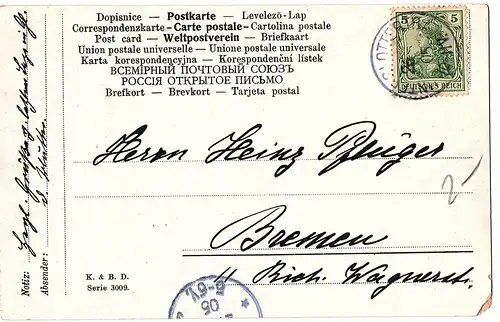 Dopisnice - Postkarte - Levelezö-Lap
Correspondenzkarte - Carte postale - Cartolina postale
Post card - Weltpostverein - Briefkaart
Union postale universelle - Unione postale universale
Karta korespondencyjna - Korespondenční lístek
ВСЕМІРНЫЙ ПОЧТОВЫЙ СОЮЗЪ
РОССІЯ ОТКРЫТОЕ ПИСЬМО
Brefkort - Brevkort - Tarjeta postal
5 5
DEUTSCHES REICH
Herrn Heinz Pflüger
2-
Bremen
11 Rich. Wagnerst.
K. & B. D.
Serie 3009.
5-6V.
05
Notiz:
Absender: